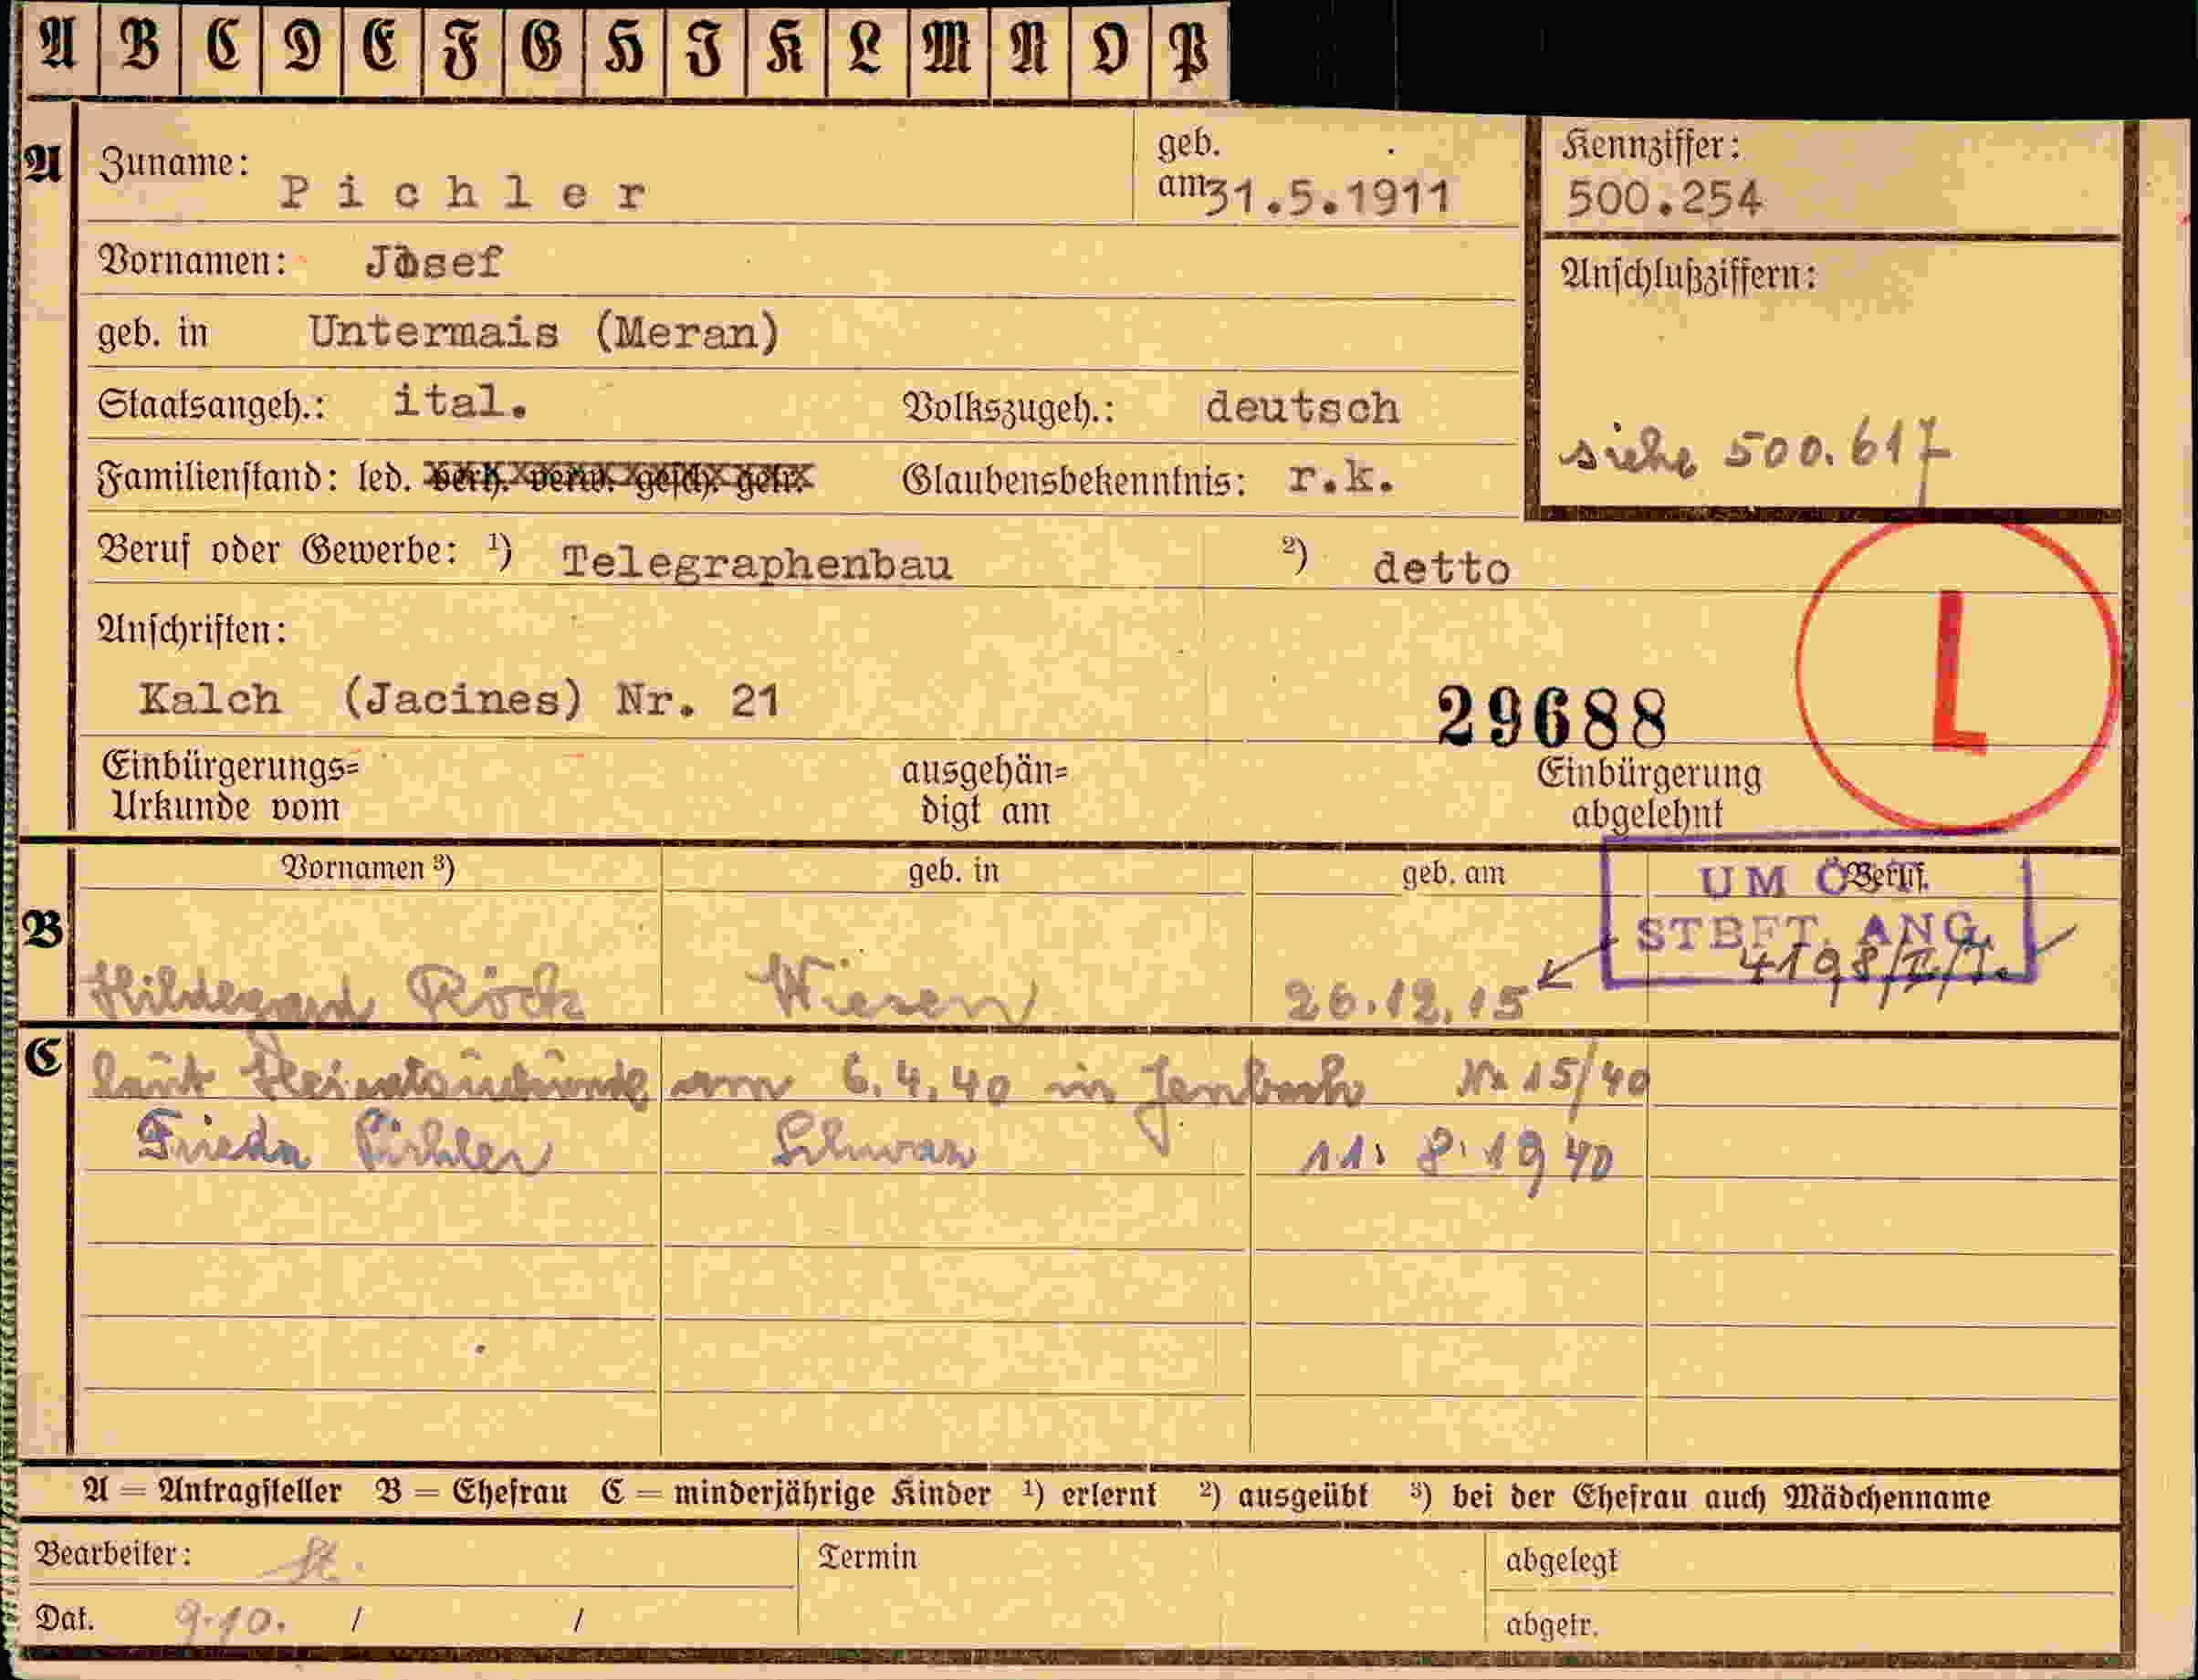 A B C D E F G H I K L M N O P
A Zuname: Pichler geb. am 31.5.1911 Kennziffer: 500.254
Vornamen: Josef Anschlußziffern:
geb. in Untermais (Meran)
Staatsangeh.: ital. Volkszugeh.: deutsch siehe 500.617
Familienstand: led. verh. verw. gesch. getr. Glaubensbekenntnis: r.k.
Beruf oder Gewerbe: ¹) Telegraphenbau ²) detto
Anschriften: L
Kalch (Jacines) Nr. 21 29688
Einbürgerungs= ausgehän= Einbürgerung
Urkunde vom digt am abgelehnt
Vornamen ³) geb. in geb. am Beruf
UM
STBFT. ANG.
4198/II/I.
B Hildegard Röck Wiesen 26.12.15
C laut Heiratsurkunde am 6.4.40 in Jenbach Nr 15/40
Frieda Pichler Schwaz 11. 8. 1940
A = Antragsteller B = Ehefrau C = minderjährige Kinder ¹) erlernt ²) ausgeübt ³) bei der Ehefrau auch Mädchenname
Bearbeiter: Termin abgelegt
Dat. 9.10. / / abgetr.